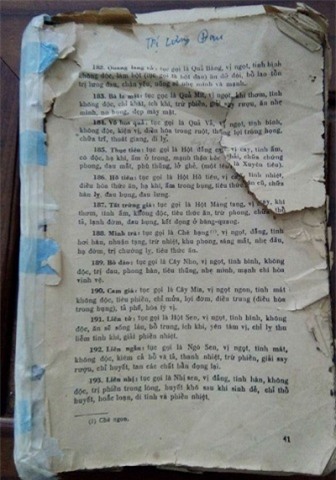 Trị lưng đau
182. Quang lang tử: tục gọi là Quả Báng, vị ngọt, tính bình
không độc, làm bột (tục gọi là bột báo) ăn đỡ đói, bổ hao tổn
trị lưng đau, chân yếu, uống
183. Bà la mật: tục gọi là Quả Mít, vị ngọt, khí thơm, tính
không độc, chỉ khát, ích khí, trừ phiền, giải say rượu, ăn nhẹ
mình, no bụng, đẹp máy mặt.
184. Vô hoa quả: tục gọi là Quả Vả, vị ngọt, tính bình,
không độc, kiện vị, điều hòa trong ruột, thông lợi trung hung,
chữa trĩ, thoát giang, đi lỵ.
185. Thục tiêu: tục gọi là Hột vị cay, tính ấm,
có độc, hạ khí, ấm ở trung, mạnh thận chữa chứng
phong, đau mắt, phù thũng, lở ghẻ, (một tên là Xuyên tiêu).
186. Hồ tiêu: tục gọi là Hột Hồ tiêu, vị cay, tính nhiệt,
điều hòa thức ăn, hạ khí, ấm trong hung, tiêu thức ăn cũ, chữa
hàn lỵ, đau hung, đau lưng.
187. Tất trừng già: tục gọi là Hột Màng tang, vị cay, khí
thơm, tính ấm, không độc, tiêu thức ăn, trừ phong, chữa thổ
tả, lạnh đờm, đau bụng, kết đọng ở bàng-quang.
188. Minh trà: tục gọi là Chè bạng(1), vị ngọt, đắng, tính
hơi hàn, nhuận tạng, trừ nhiệt, khu phong, sáng mắt, nhẹ đầu,
hạ đờm, trị chướng lỵ, tiêu thức ăn.
189. Bồ đào: tục gọi là Cây Nho, vị ngọt, tính bình, không
độc, trị đau, phong hàn, tiêu thăng, nhẹ mình, mạnh chí hòa
vinh vệ.
190. Cam giá: tục gọi là Cây Mía, vị ngọt ngon, tính mát
không độc, tiêu phiền, chỉ mửa, lợi đờm, điều trung (điều hòa
trong bụng), tả phế, hòa tỳ vị.
191. Liên tử: tục gọi là Hột Sen, vị ngọt, tính bình, không
độc, ăn sẽ sống lâu, bổ trung, ích khí, yên tâm vị, chỉ lỵ thu
liễm tinh khí, giải phiền nhiệt.
192. Liên ngẫu: tục gọi là Ngó Sen, vị ngọt, tính mát,
không độc, kiêm cả bổ và tả, thanh nhiệt, trừ phiền, giải say
rượu, chỉ huyết, tan các chất bầu đọng lại.
193. Liên nhị: tục gọi là Nhị sen, vị đắng, tính hàn, không
độc, trị phiền trong lòng, huyết khô sau khi sinh đẻ, chỉ thổ
huyết, hoắc loạn, di tinh và phiền nhiệt.
(1) Chè ngon.
41